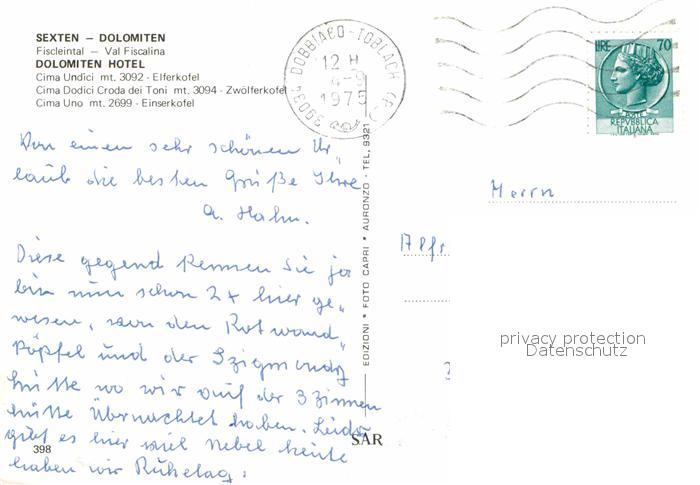 SEXTEN – DOLOMITEN
Fiscleintal – Val Fiscalina
DOLOMITEN HOTEL
Cima Undici mt. 3092 - Elferkofel
Cima Dodici Croda dei Toni mt. 3094 - Zwölferkofel
Cima Uno mt. 2699 - Einserkofel
39034 DOBBIACO-TOBLACH
12 H
1975
LIRE 70
POSTE
REPVBBLICA
ITALIANA
Von einen sehr schönen Ur„
laub die besten Grüße Ihre
A. Hahn.
Diese gegend kennen Sie ja
bin nun schon 2x hier ge„
wesen, von den Rotwand„
Köpfel und der 3zigmondy
hütte wo wir auf der 3 Zinnen
hütte Übernachtet haben. Leider
gibt es hier viel Nebel heute
haben wir Ruhetag.
398
SAR
EDIZIONI * FOTO CAPRI * AURONZO - TEL. 9321
Herrn
privacy protection
Datenschutz